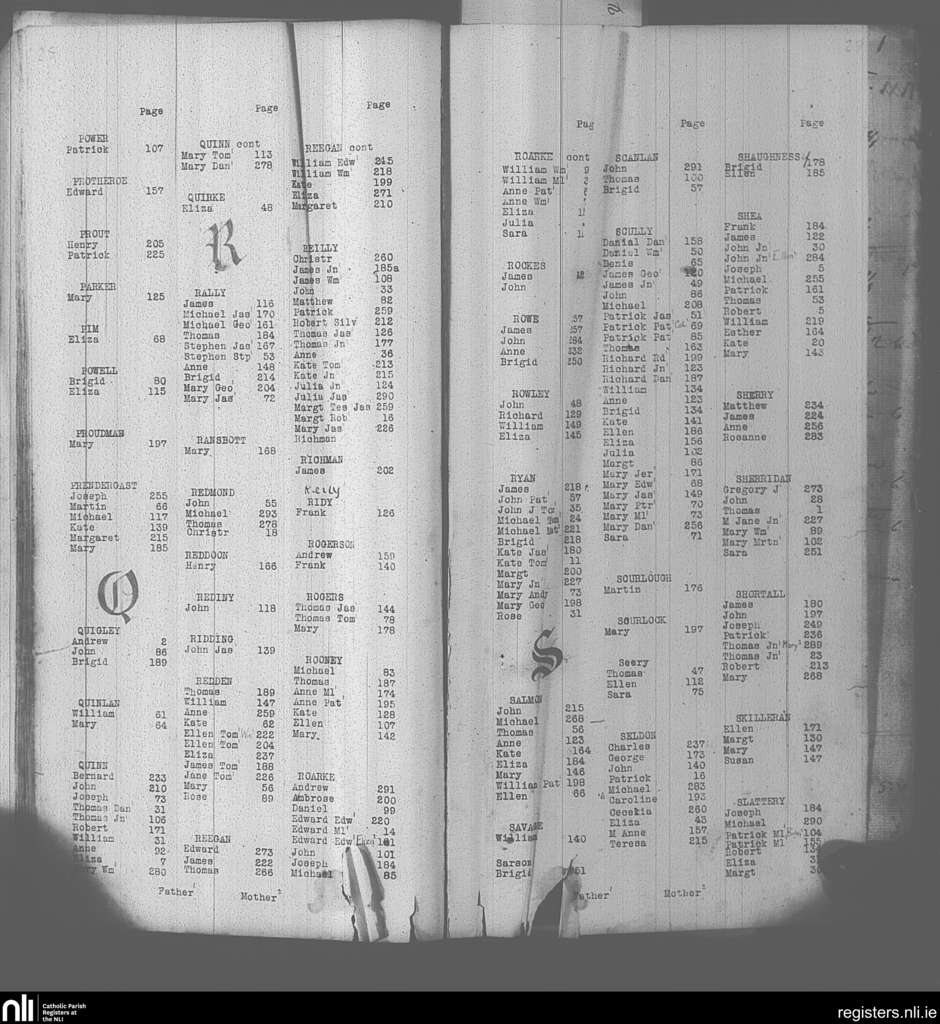 Page
POWER
Patrick 107
PROTHEROE
Edward 157
PROUT
Henry 205
Patrick 225
PARKER
Mary 125
PIM
Eliza 68
POWELL
Brigid 80
Eliza 115
PROUDMAN
Mary 197
PRENDERGAST
Joseph 255
Martin 66
Michael 117
Kate 139
Margaret 215
Mary 185
Q
QUIGLEY
Andrew 2
John 86
Brigid 189
QUINLAN
William 61
Mary 64
QUINN
Bernard 233
John 210
Joseph 73
Thomas Dan 31
Thomas Jn' 106
Robert 171
William 31
Anne 92
Eliza 7
Wm' 280
Page
QUINN cont
Mary Tom' 113
Mary Dan' 278
QUIRKE
Eliza 48
R
RALLY
James 116
Michael Jas 170
Michael Geo' 161
Thomas 184
Stephen Jas' 167
Stephen Stp' 53
Anne 148
Brigid 214
Mary Geo 204
Mary Jas' 72
RANSBOTT
Mary 168
REDMOND
John 55
Michael 293
Thomas 278
Christr 18
REDDOON
Henry 166
REDINY
John 118
RIDDING
John Jas 139
REDDEN
Thomas 189
William 147
Anne 259
Kate 62
Ellen Tom' 222
Ellen Tom' 204
Eliza 237
James Tom' 188
Jane Tom' 226
Mary 56
Rose 89
REEGAN
Edward 273
James 222
Thomas 266
Page
REEGAN cont
William Edw' 245
William Wm' 218
Kate 199
Eliza 271
Margaret 210
REILLY
Christr 260
James Jn' 185a
James Wm' 108
John 33
Matthew 82
Patrick 259
Robert Silv' 212
Thomas Jas' 126
Thomas Jn' 177
Anne 36
Kate Tom' 213
Kate Jn' 215
Julia Jn' 124
Julia Jas' 290
Margt Tes Jas 259
Margt Rob' 16
Mary Jas' 226
Richman
RICHMAN
James 202
Reilly
RIDY
Frank 126
ROGERSON
Andrew 159
Frank 140
ROGERS
Thomas Jas 144
Thomas Tom' 78
Mary 178
ROONEY
Michael 83
Thomas 187
Anne Ml' 174
Anne Pat' 195
Kate 128
Ellen 107
Mary 142
ROARKE
Andrew 291
Ambrose 200
Daniel 99
Edward Edw' 220
Edward Ml' 14
Edward Edw' 101
John 101
Joseph 184
Michael 85
Father' Mother²
Pag
ROARKE cont
William Wm' 9
William Ml'
Anne Pat'
Anne Wm'
Eliza
Julia
Sara
ROCKES
James
John
ROWE 57
James 257
John 284
Anne 232
Brigid 250
ROWLEY
John 48
Richard 129
William 149
Eliza 145
RYAN
James 218
John Pat' 57
John J Tom' 35
Michael Tm' 24
Michael 221
Brigid 218
Kate Jas' 180
Kate Tom' 11
Margt 200
Mary Jn' 227
Mary Andy 73
Mary Geo' 198
Rose 31
S
SALMON
John 215
Michael 268
Thomas 56
Anne 123
Kate 164
Eliza 184
Mary 146
William Pat' 198
Ellen 66
SAVAGE
William 140
Sarson
Brigid
Page
SCANLAN
John 291
Thomas 100
Brigid 57
SCULLY
Danial Dan' 158
Daniel Wm' 50
Denis 65
James Geo' 120
James Jn' 49
John 86
Michael 208
Patrick Jas' 51
Patrick Pat' 69
Patrick Pat 85
Thomas 163
Richard Rd 199
Richard Jn' 123
Richard Dan' 187
William 134
Anne 123
Brigid 134
Kate 141
Ellen 186
Eliza 156
Julia 102
Margt 86
Mary Jer' 171
Mary Edw' 68
Mary Jas' 149
Mary Ptr' 70
Mary Ml' 73
Mary Dan' 256
Sara 71
SCURLOUGH
Martin 176
SCURLOCK
Mary 197
Seery
Thomas 47
Ellen 112
Sara 75
SELDON
Charles 237
George 173
John 140
Patrick 16
Michael 283
Caroline 193
Cecelia 260
Eliza 43
M Anne 157
Teresa 215
Page
SHAUGHNESSY
Brigid 178
Ellen 185
SHEA
Frank 184
James 122
John Jn' 30
John Jn' Ellen² 284
Joseph 5
Michael 255
Patrick 161
Thomas 53
Robert 5
William 219
Esther 164
Kate 20
Mary 143
SHERRY
Matthew 234
James 224
Anne 256
Rosanne 283
SHERRIDAN
Gregory J' 273
John 28
Thomas 1
M Jane Jn' 227
Mary Wm' 89
Mary Mrtn' 102
Sara 251
SHORTALL
James 180
John 197
Joseph 249
Patrick 236
Thomas Jn' Mary² 289
Thomas Jn' 23
Robert 213
Mary 268
SKILLERAN
Ellen 171
Margt 130
Mary 147
Susan 147
SLATTERY
Joseph 184
Michael 290
Patrick Ml' 104
Patrick Ml' 155
Robert
Eliza
Margt
Father' Mother²
nli Catholic Parish
Registers at
the NLI
registers.nli.ie